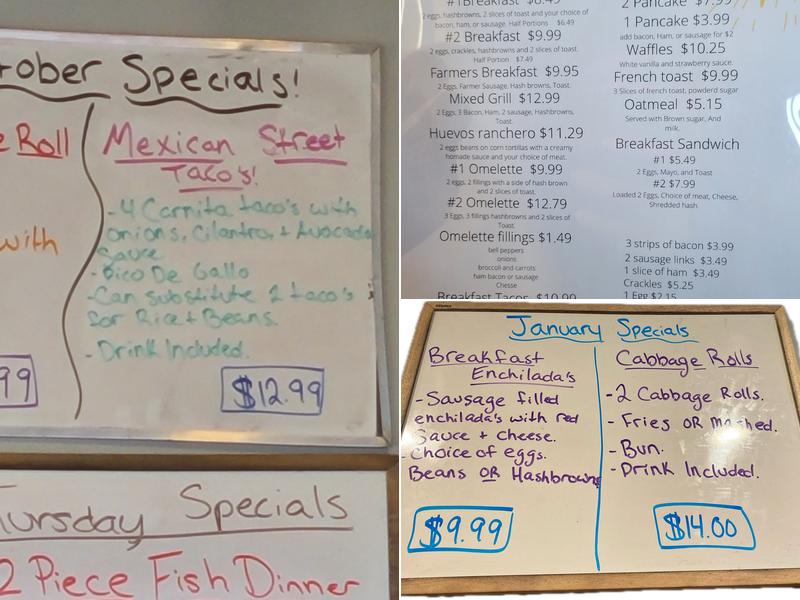 ober Specials!
e Roll
with
99
Mexican Street
Taco's!
- 4 Carnita taco's with
onions, Cilantro, + Avocado
Sauce
- Pico De Gallo
- Can substitute 2 taco's
for Rice + Beans.
- Drink Included.
$12.99
Tursday Specials
2 Piece Fish Dinner
#1 Breakfast $8.49
2 eggs, hashbrowns, 2 slices of toast and your choice of
bacon, ham, or sausage. Half Portions $6.49
#2 Breakfast $9.99
2 eggs, crackles, hashbrowns and 2 slices of toast.
Half Portion $7.49
Farmers Breakfast $9.95
2 Eggs, Farmer Sausage, Hash browns, Toast.
Mixed Grill $12.99
2 Eggs, 3 Bacon, Ham, 2 sausage, Hashbrowns,
Toast.
Huevos ranchero $11.29
2 eggs beans on corn tortillas with a creamy
homade sauce and your choice of meat.
#1 Omelette $9.99
2 eggs, 2 fillings with a side of hash brown
and 2 slices of toast.
#2 Omelette $12.79
3 Eggs, 3 fillings hashbrowns and 2 slices of
Toast.
Omelette fillings $1.49
bell peppers
onions
broccoli and carrots
ham bacon or sausage
Chesse
Breakfast Tacos $10.99
2 Pancake $7.99
1 Pancake $3.99
add bacon, Ham, or sausage for $2
Waffles $10.25
White vanilla and strawberry sauce.
French toast $9.99
3 Slices of french toast, powderd sugar
Oatmeal $5.15
Served with Brown sugar, And
milk.
Breakfast Sandwich
#1 $5.49
2 Eggs, Mayo, and Toast
#2 $7.99
Loaded 2 Eggs, Choice of meat, Cheese,
Shredded hash
3 strips of bacon $3.99
2 sausage links $3.49
1 slice of ham $3.49
Crackles $5.25
1 Egg $2.15
January Specials
Breakfast
Enchilada's
- Sausage filled
enchilada's with red
Sauce + Cheese.
- Choice of eggs.
Beans OR Hashbrowns
$9.99
Cabbage Rolls
- 2 Cabbage Rolls.
- Fries OR mashed.
- Bun.
- Drink Included.
$14.00